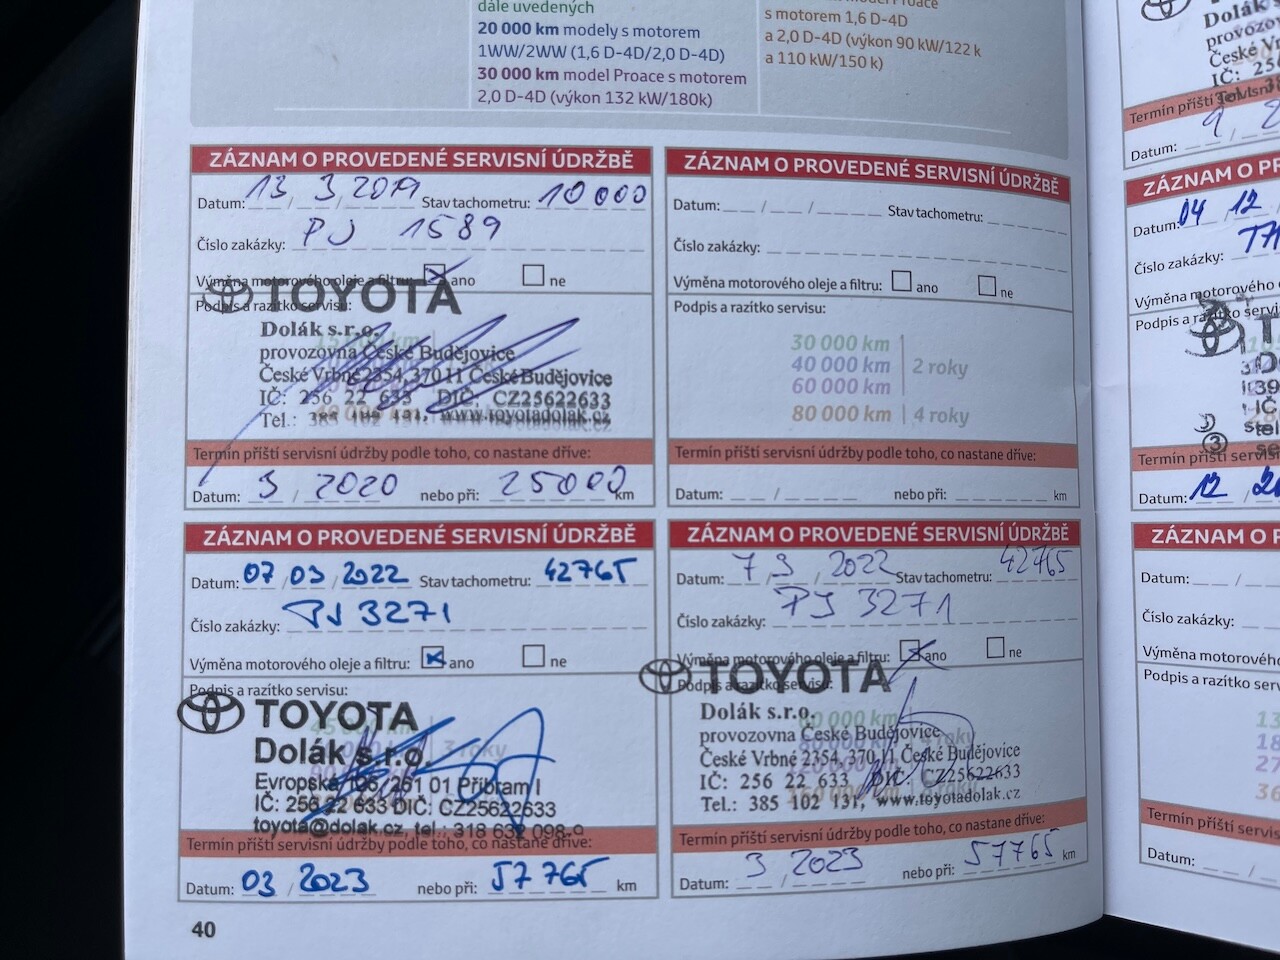 dále uvedených
20 000 km modely s motorem
1WW/2WW (1,6 D-4D/2,0 D-4D)
30 000 km model Proace s motorem
2,0 D-4D (výkon 132 kW/180k)
model Proace
s motorem 1,6 D-4D
a 2,0 D-4D (výkon 90 kW/122 k
a 110 kW/150 k)
ZÁZNAM O PROVEDENÉ SERVISNÍ ÚDRŽBĚ
Datum: 13 / 3 / 2019 Stav tachometru: 10000
Číslo zakázky: PJ 1589
Výměna motorového oleje a filtru: ano ne
Podpis a razítko servisu:
TOYOTA
Dolák s.r.o.
provozovna České Budějovice
České Vrbné 2354, 370 11 České Budějovice
IČ: 256 22 633 DIČ: CZ25622633
Tel.: 385 102 131, www.toyotadolak.cz
Termín příští servisní údržby podle toho, co nastane dříve:
Datum: 3 / 2020 nebo při: 25000 km
ZÁZNAM O PROVEDENÉ SERVISNÍ ÚDRŽBĚ
Datum: / / Stav tachometru:
Číslo zakázky:
Výměna motorového oleje a filtru: ano ne
Podpis a razítko servisu:
30 000 km
40 000 km 2 roky
60 000 km
80 000 km 4 roky
Termín příští servisní údržby podle toho, co nastane dříve:
Datum: / nebo při: km
ZÁZNAM O PROVEDENÉ SERVISNÍ ÚDRŽBĚ
Datum: 07 / 03 / 2022 Stav tachometru: 42765
Číslo zakázky: PJ 3271
Výměna motorového oleje a filtru: ano ne
Podpis a razítko servisu:
TOYOTA
Dolák s.r.o.
3 roky
Evropská 261 01 Příbram I
IČ: 256 22 633 DIČ: CZ25622633
toyota@dolak.cz, tel.: 318 632 098-9
Termín příští servisní údržby podle toho, co nastane dříve:
Datum: 03 / 2023 nebo při: 57765 km
ZÁZNAM O PROVEDENÉ SERVISNÍ ÚDRŽBĚ
Datum: 7 / 3 / 2022 Stav tachometru: 42765
Číslo zakázky: PJ 3271
Výměna motorového oleje a filtru: ano ne
Podpis a razítko servisu:
TOYOTA
Dolák s.r.o.
provozovna České Budějovice
České Vrbné 2354, 370 11 České Budějovice
IČ: 256 22 633 DIČ: CZ25622633
Tel.: 385 102 131, www.toyotadolak.cz
Termín příští servisní údržby podle toho, co nastane dříve:
Datum: 3 / 2023 nebo při: 57765 km
40
Dolák
provozovn
České Vr
IČ: 256
Termín příští servisní
Datum:
ZÁZNAM O P
Datum: 04 / 12
Číslo zakázky:
Výměna motorového
Podpis a razítko servi
Termín příští servisní
Datum: 12
ZÁZNAM O P
Datum:
Číslo zakázky:
Výměna motorového
Podpis a razítko servi
Termín příští servis
Datum: